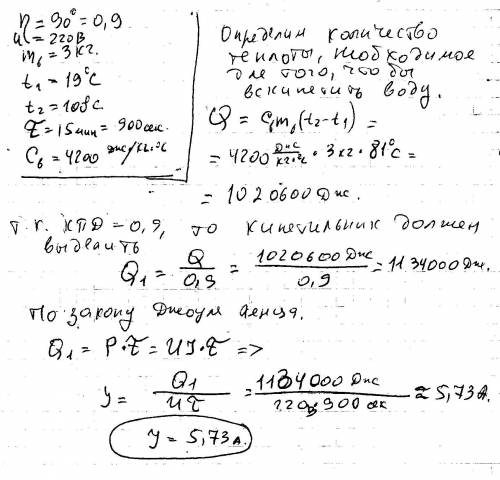 η = 90° = 0,9
u = 220В
mв = 3 кг.
t1 = 19°C
t2 = 108C
τ = 15 мин = 900 сек.
Cв = 4200 Дж/кг·°C
Определим количество
теплоты, необходимое
для того, что бы
вскипятить воду.
Q = Cвmв(t2-t1) =
= 4200 Дж/кг·°C · 3 кг · 81°C =
= 1020600 Дж.
т.к. КПД = 0,9, то кипетильник должен
выделить
Q1 = Q/0,9 = 1020600 Дж/0,9 = 1134000 Дж.
По закону Джоуля Ленца.
Q1 = P·τ = UJ·τ =>
y = Q1/Uτ = 1134000 Дж/220в 900 сек ≈ 5,73 А.
y = 5,73 А.